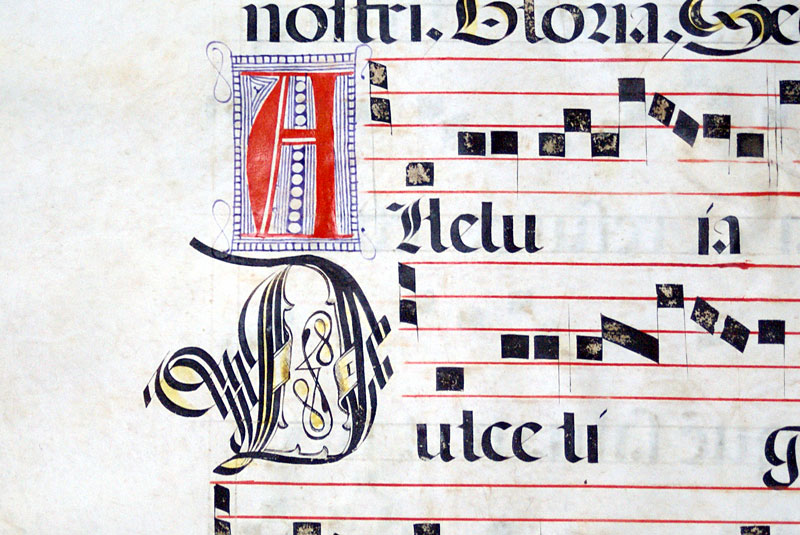 nostri. Gloria.
Allelu ia
Dulce li g